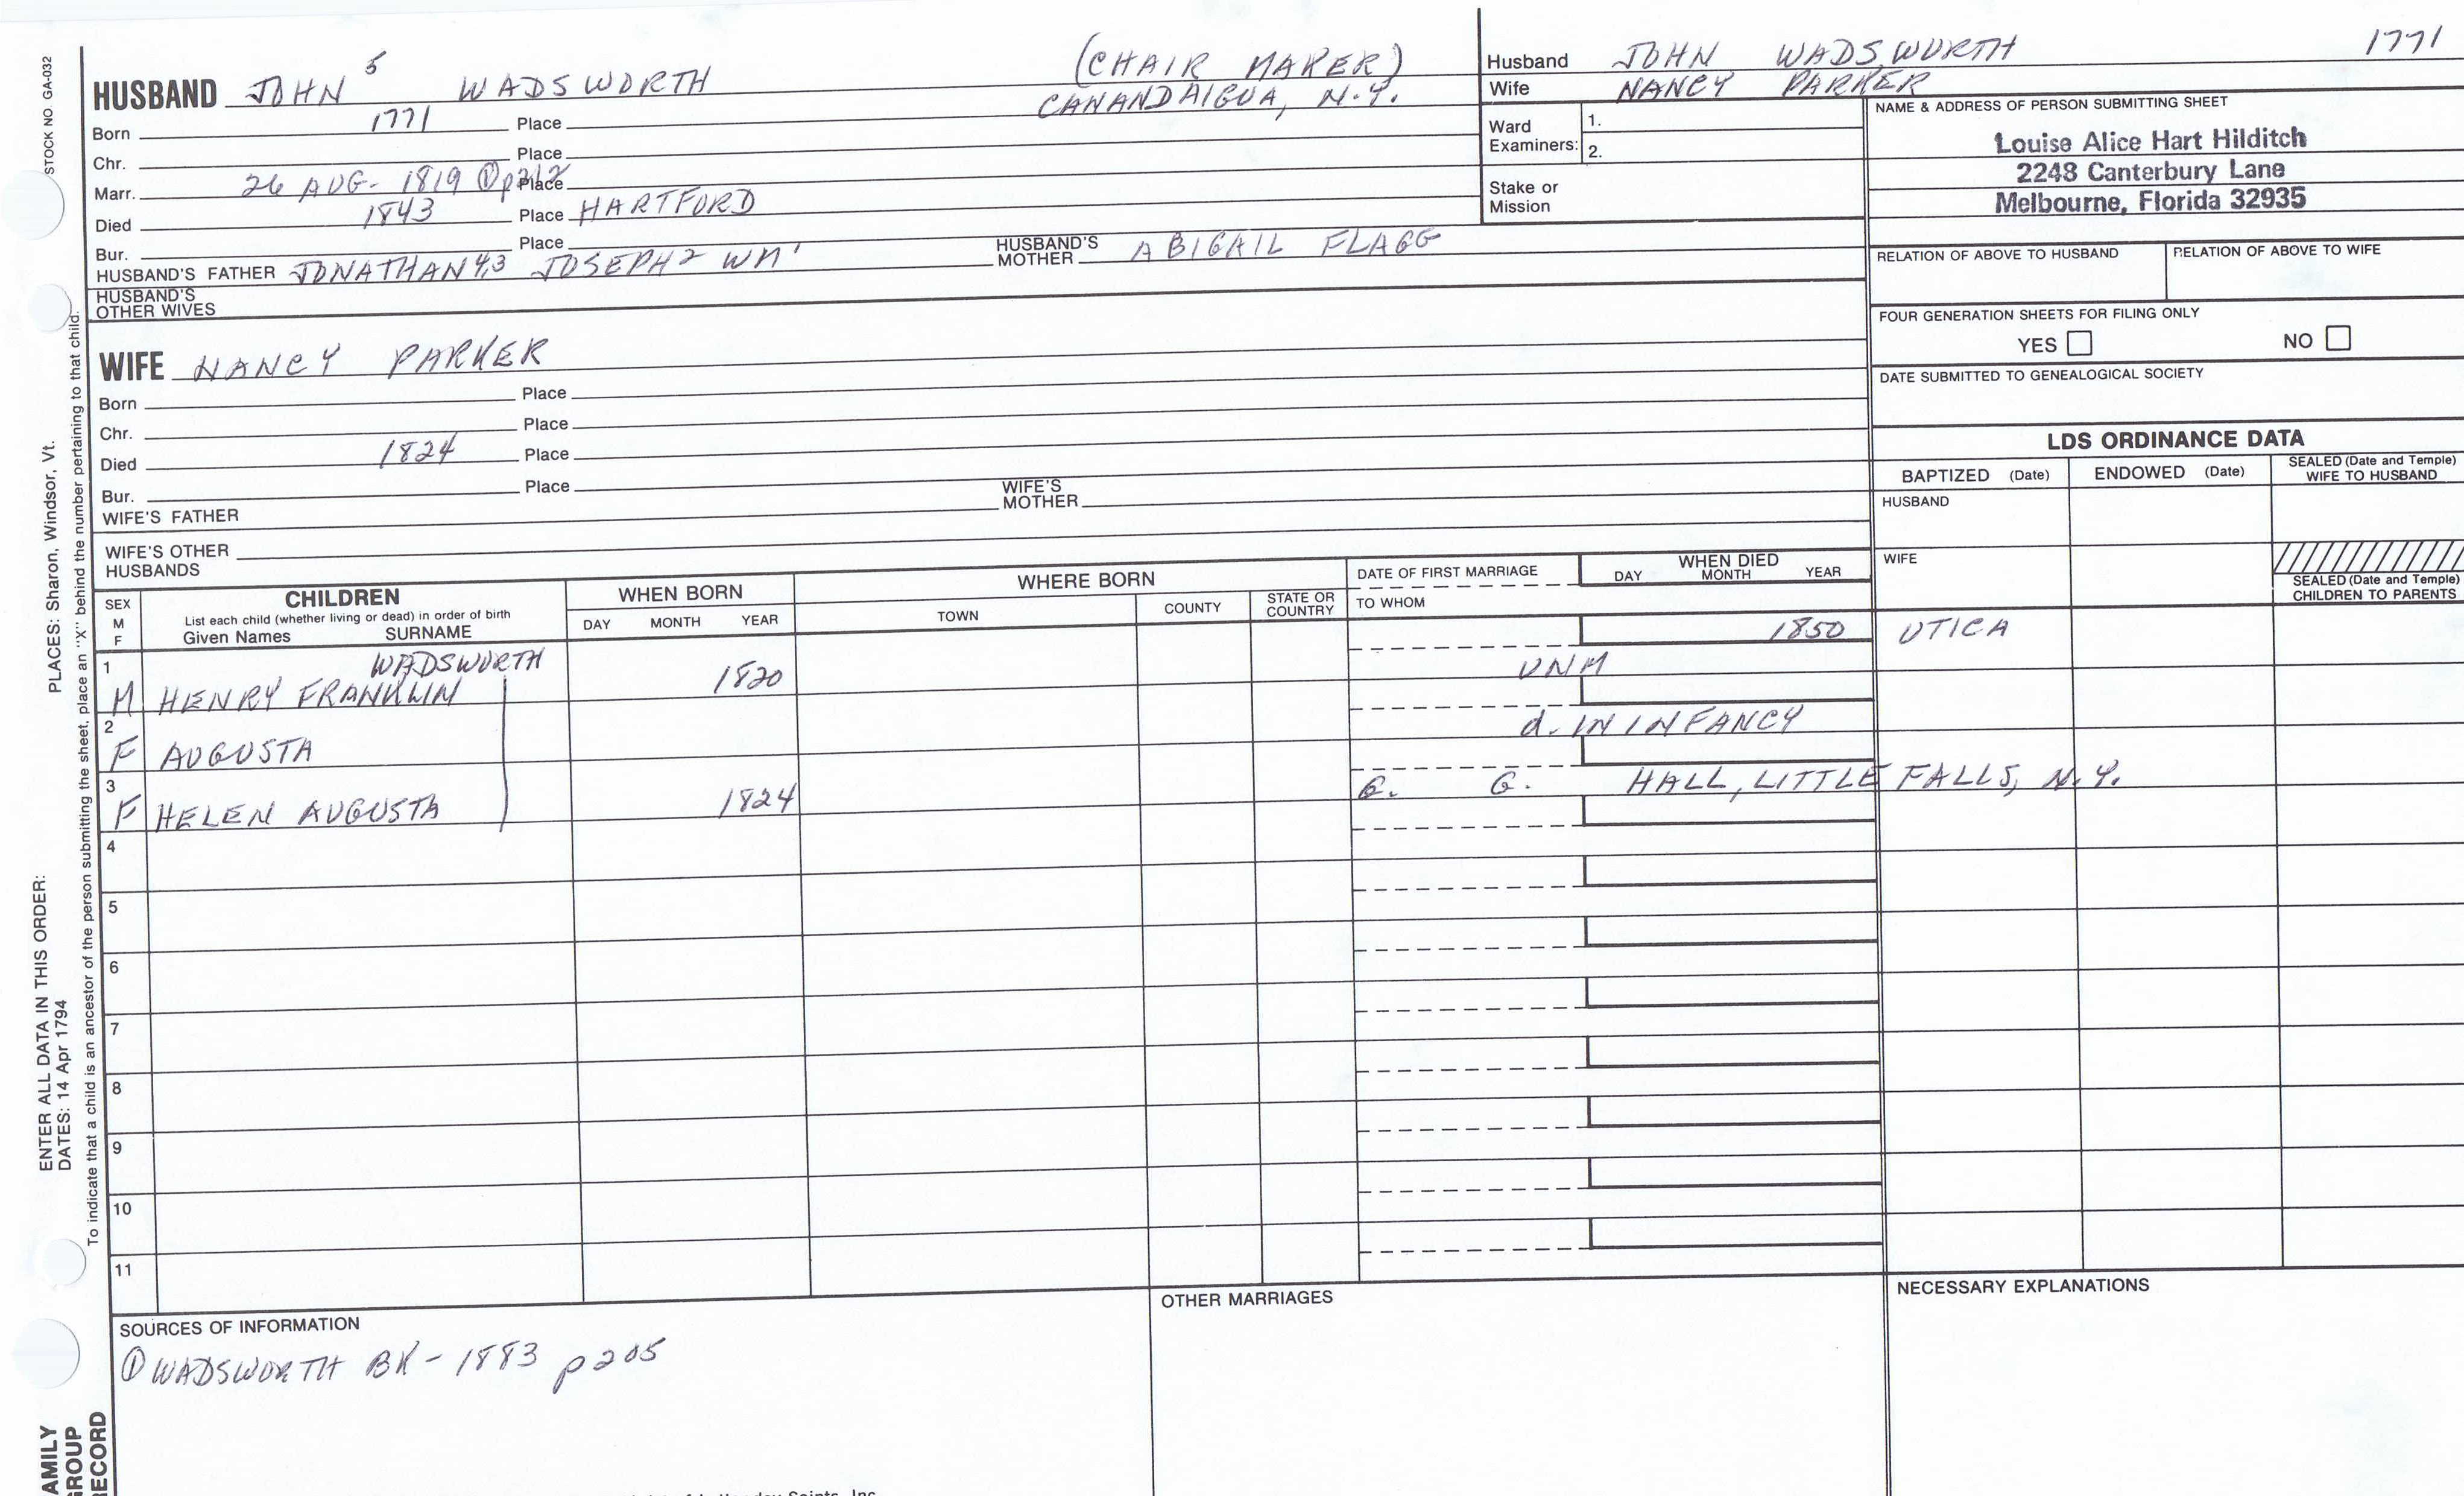 STOCK NO GA-032
PLACES: Sharon, Windsor, Vt.
ENTER ALL DATA IN THIS ORDER:
DATES: 14 Apr 1794
To indicate that a child is an ancestor of the person submitting the sheet, place an "X" behind the number pertaining to that child.
AMILY
GROUP
RECORD
HUSBAND JOHN 5 WADSWORTH (CHAIR MAKER)
CANANDAIGUA, N.Y.
Born 1771 Place
Chr. Place
Marr. 26 AUG- 1819 ① p212 Place
Died 1843 Place HARTFORD
Bur. Place
HUSBAND'S FATHER JONATHAN 4,3 JOSEPH 2 WM 1 HUSBAND'S MOTHER ABIGAIL FLAGG
HUSBAND'S OTHER WIVES
WIFE NANCY PARKER
Born Place
Chr. Place
Died 1824 Place
Bur. Place
WIFE'S FATHER WIFE'S MOTHER
WIFE'S OTHER HUSBANDS
Husband JOHN WADSWORTH 1771
Wife NANCY PARKER
Ward Examiners: 1.
2.
Stake or Mission
NAME & ADDRESS OF PERSON SUBMITTING SHEET
Louise Alice Hart Hilditch
2248 Canterbury Lane
Melbourne, Florida 32935
RELATION OF ABOVE TO HUSBAND RELATION OF ABOVE TO WIFE
FOUR GENERATION SHEETS FOR FILING ONLY
YES NO
DATE SUBMITTED TO GENEALOGICAL SOCIETY
LDS ORDINANCE DATA
BAPTIZED (Date) ENDOWED (Date) SEALED (Date and Temple) WIFE TO HUSBAND
HUSBAND
WIFE
SEALED (Date and Temple) CHILDREN TO PARENTS
SEX M F
CHILDREN
List each child (whether living or dead) in order of birth
Given Names SURNAME
WHEN BORN
DAY MONTH YEAR
WHERE BORN
TOWN COUNTY STATE OR COUNTRY
DATE OF FIRST MARRIAGE
TO WHOM
WHEN DIED
DAY MONTH YEAR
1 WADSWORTH 1850 UTICA
M HENRY FRANKLIN 1820 UNM
2
F AUGUSTA d. IN INFANCY
3
F HELEN AUGUSTA 1824 G. G. HALL, LITTLE FALLS, N.Y.
4
5
6
7
8
9
10
11
SOURCES OF INFORMATION
① WADSWORTH BK- 1883 p205
OTHER MARRIAGES
NECESSARY EXPLANATIONS